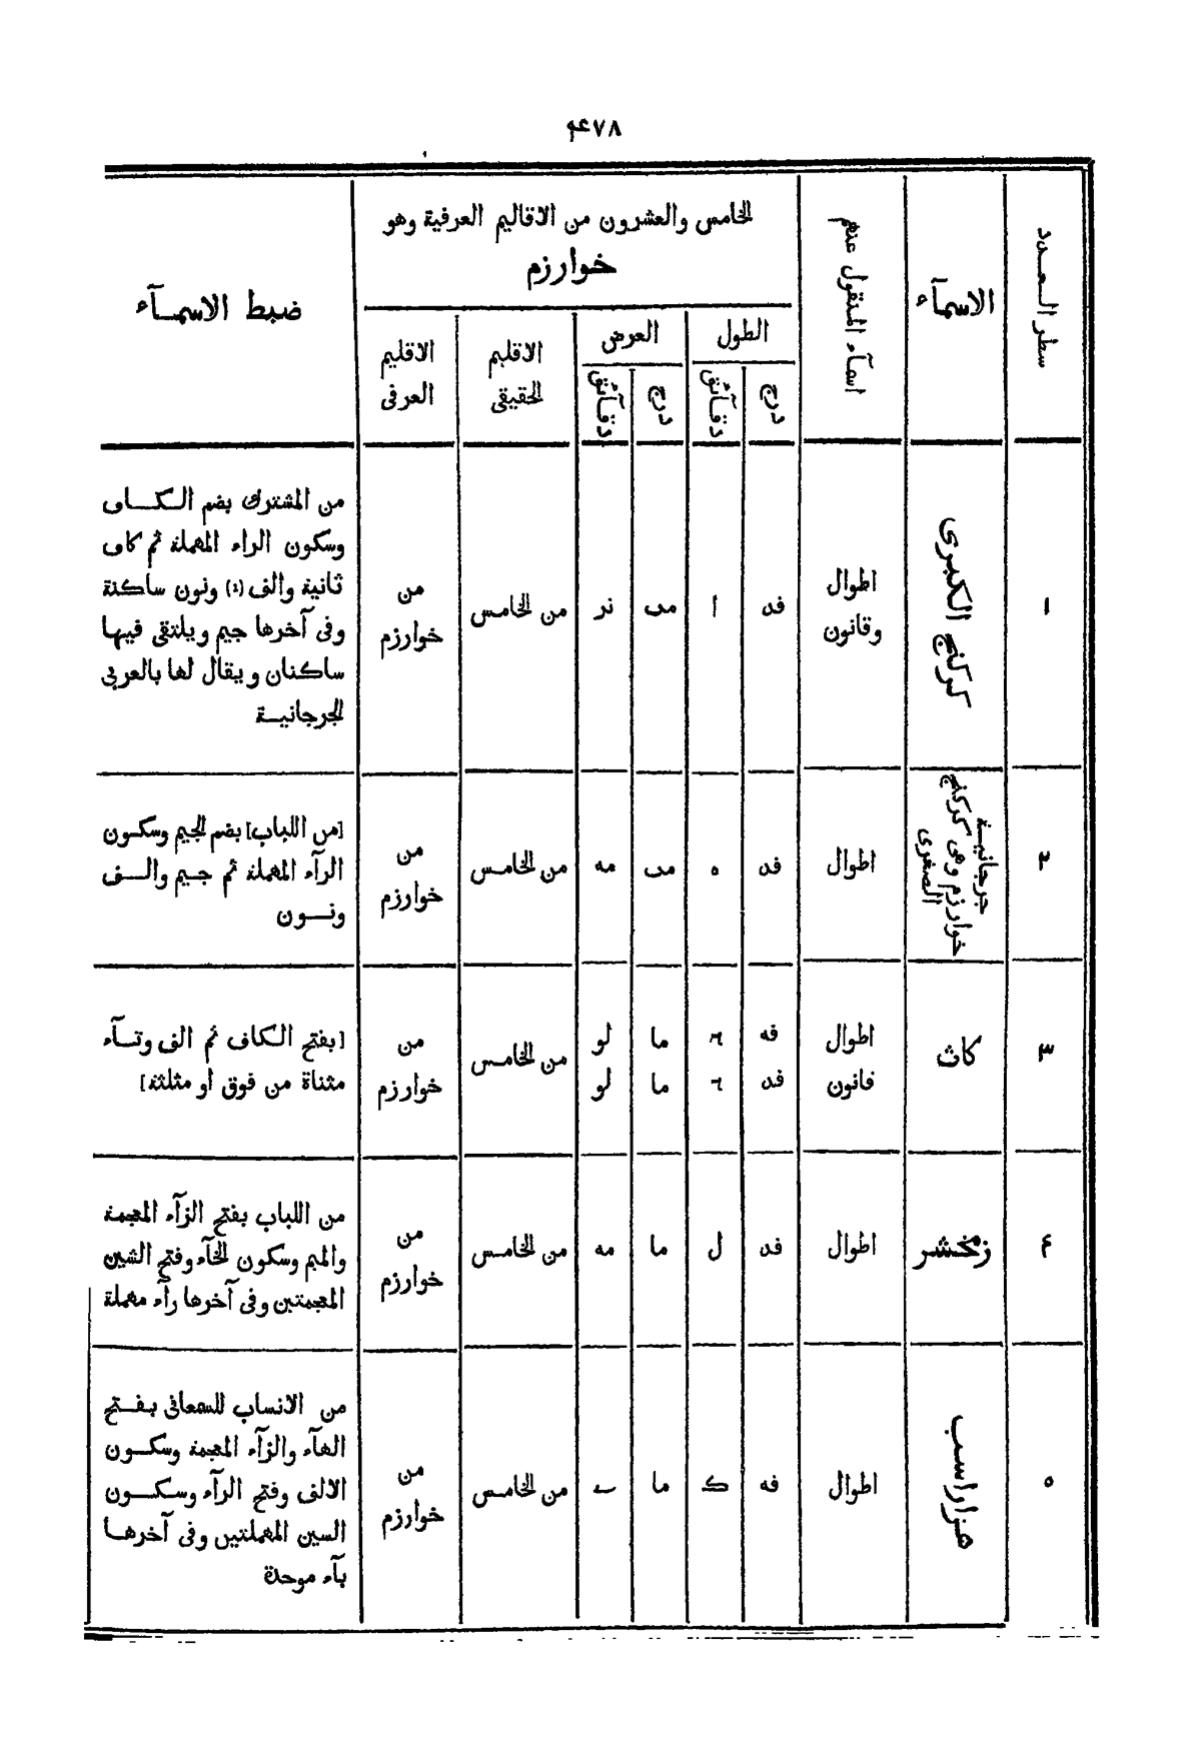 ۴۷۸
سطر العدد
الاسمآء
اسمآء المنقول عنهم
الخامس والعشرون من الاقاليم العرفية وهو
خوارزم
الطول
درج
دقآئق
العرض
درج
دقآئق
الاقليم
الحقيقى
الاقليم
العرفى
ضبط الاسمـآء
١
كركنج الكبرى
اطوال
وقانون
فد
ا
مب
نر
من الخامس
من
خوارزم
من المشترك بضم الكاف
وسكون الراء المهملة ثم كاف
ثانية والف (١) ونون ساكنة
وفى آخرها جيم ويلتقى فيها
ساكنان ويقال لها بالعربى
الجرجانية
٢
جرجانية
خوارزم وهى كركنج
الصغرى
اطوال
فد
ه
مب
مه
من الخامس
من
خوارزم
[من اللباب] بضم الجيم وسكون
الرآء المهملة ثم جيم والف
ونون
٣
كاث
اطوال
فه
ما
لو
قانون
فد
ما
لو
من الخامس
من
خوارزم
[بفتح الكاف ثم الف وتآء
مثناة من فوق او مثلثة]
٤
زمخشر
اطوال
فد
ل
ما
مه
من الخامس
من
خوارزم
من اللباب بفتح الزآء المعجمة
والميم وسكون الخآء وفتح الشين
المعجمتين وفى آخرها رآء مهملة
٥
هزاراسب
اطوال
فه
ك
ما
ى
من الخامس
من
خوارزم
من الانساب للسمعانى بفتح
الهآء والزآء المعجمة وسكون
الالف وفتح الرآء وسكون
السين المهملتين وفى آخرها
بآء موحدة